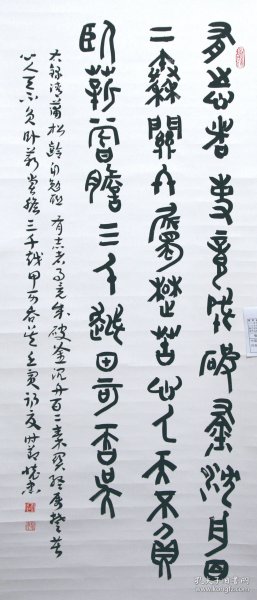 有志者事竟成破釜沈舟百
二秦關終屬楚苦心人天不負
臥薪嘗膽三千越甲可吞吳
右錄清蒲松齡自勉聯 有志者事竟成破釜沉舟百二秦關終屬楚苦
心人天不負臥薪嘗膽三千越甲可吞吳